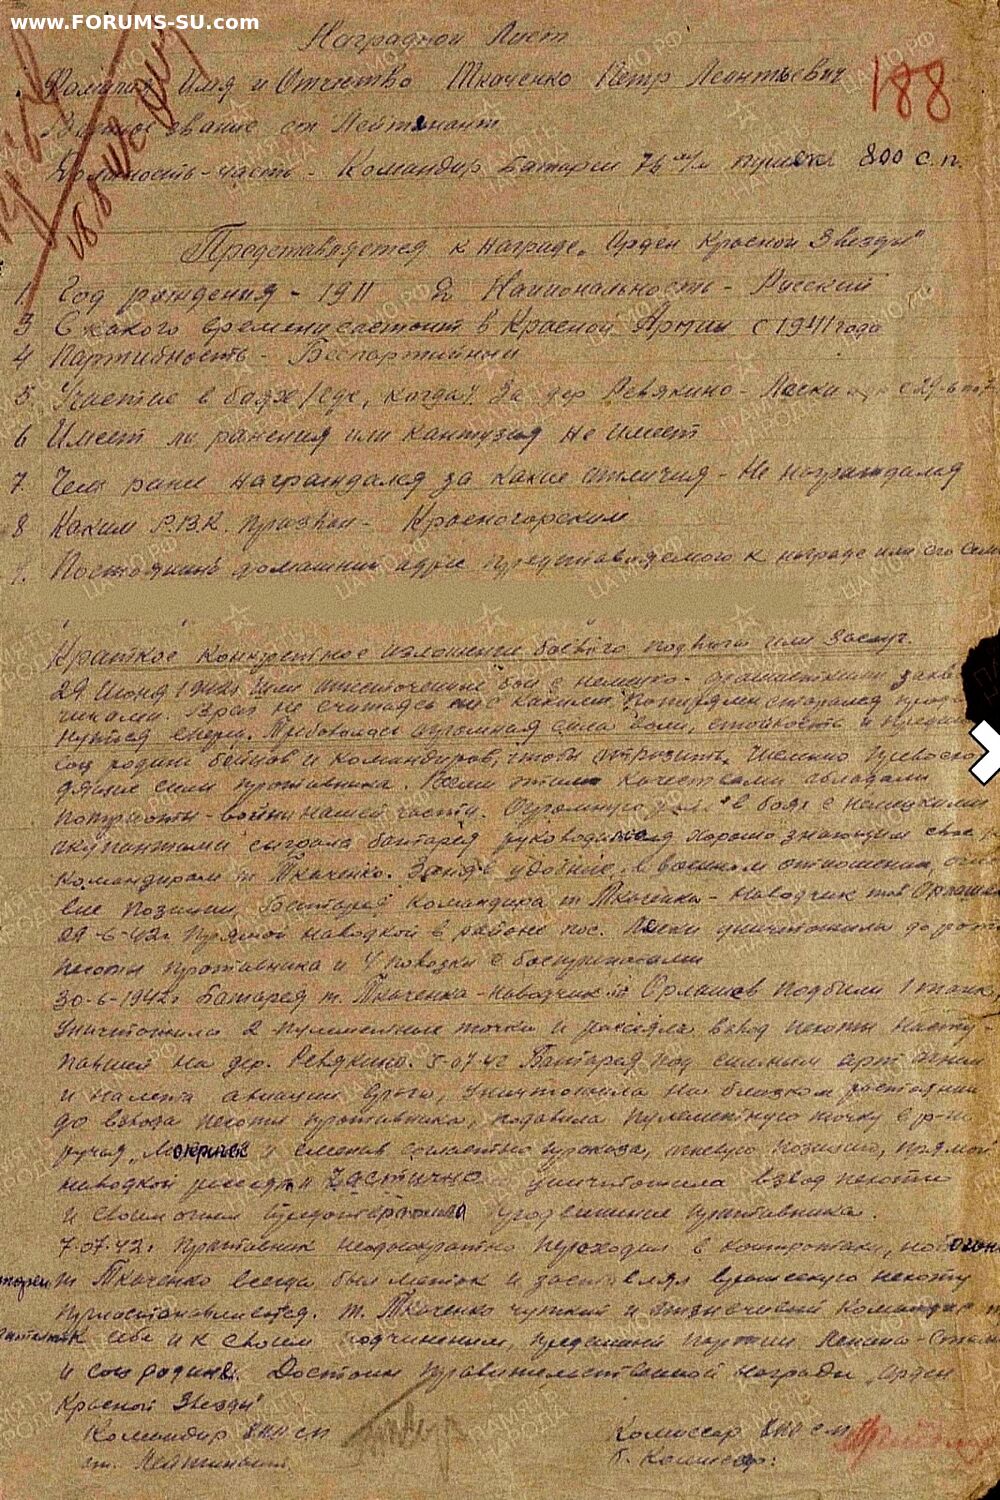 www.FORUMS-SU.com
Наградной Лист
188
Фамилия Имя и Отчество Ткаченко Петр Леонтьевич
Военное звание ст Лейтенант
Должность-часть - Командир Батареи 76 м/м пушек 800 с.п.
Представляется к награде „Орден Красной Звезды"
1 Год рождения - 1911 2 Национальность - Русский
3 С какого времени состоит в Красной Армии с 1941 года
4 Партийность - Беспартийный
5 Участие в боях /где, когда/ За дер Ревякино - Лески с 29-6 по 7
6 Имеет ли ранения или контузия не имеет
7. Чем ранее награждался за какие отличия - Не награждался
8 Каким Р.В.К. призван - Красногорским
9. Постоянный домашний адрес представляемого к награде или его семьи
Краткое конкретное изложение боевого подвига или заслуг.
29 Июня 1942г Шли ожесточенные бои с немецко-фашистскими захват
чиками. Враг не считаясь ни с какими потерями старался продви
нуться вперед. Требовалась огромная сила воли, стойкость и
соц родине бойцов и командиров, чтобы отразить численно превосхо
дящие силы противника. Всеми этими качествами обладали
патриоты - войны нашей части. Огромную роль в боях с немецкими
окупантами сыграла батарея руководимая хорошо знающим свое
командиром т Ткаченко. Заняв удобные в военном отношении, огне
вые позиции, Батарея командира т Ткаченко - наводчик тов Орлашев
29-6-42г прямой наводкой в районе пос. Лески уничтожила до роты
пехоты противника и 4 повозки с боеприпасами
30-6-1942г Батарея т. Ткаченко - наводчик т Орлашев подбили 1 танк,
уничтожила 2 пулеметные точки и рассеяла взвод пехоты насту-
павшей на дер. Ревякино. 5-07-42 Батарея под сильным арт огнем
и налета авиации врага, уничтожила на близком расстоянии
до взвода пехоты противника, подавила пулеметную точку в р-не
ручья „Мокрый" и сменив согласно приказа, огневую позицию, прямой
наводкой рассеяла и частично уничтожила взвод пехоты
и своим огнем продвижение противника.
7-07-42г Противник неоднократно переходил в контратаки, но огонь
батареи т Ткаченко всегда был меток и заставлял вражескую пехоту
приостановиться. т. Ткаченко чуткий и отзывчивый командир
к себе и к своим подчиненным, преданный партии Ленина-Сталина
и соц родине. Достоин правительственной награды „Орден
Красной Звезды"
Командир 800 сп
ст. Лейтенант
Комиссар 800 сп
б. Комиссар: